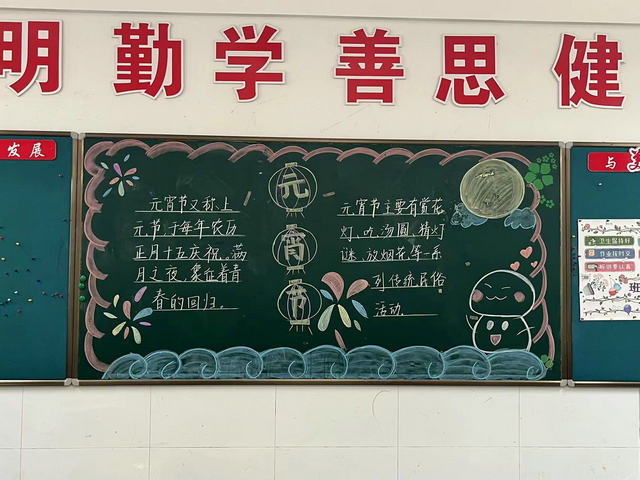 明勤学善思健
发展
与
元宵节
元宵节又称上
元节于每年农历
正月十五庆祝、满
月之夜,象征着青
春的回归。
元宵节主要有赏花
灯、吃汤圆、猜灯
谜、放烟花等一系
列传统民俗
活动.
卫生保持好
作业按时交
班